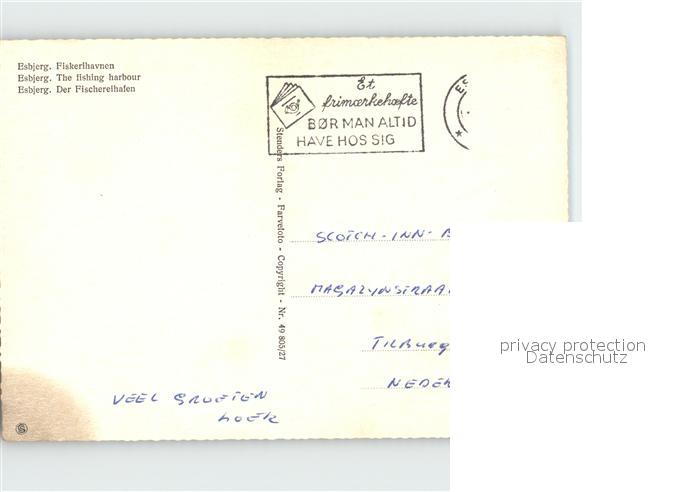 Esbjerg. Fiskerihavnen
Esbjerg. The fishing harbour
Esbjerg. Der Fischereihafen
Et
frimærkehæfte
BØR MAN ALTID
HAVE HOS SIG
Stenders Forlag - Farvefoto - Copyright - Nr. 49 805/27
SCOTCH-INN-
MAGAZYNSTRAA
TILBURG
NEDER
VEEL GROETEN
privacy protection
Datenschutz